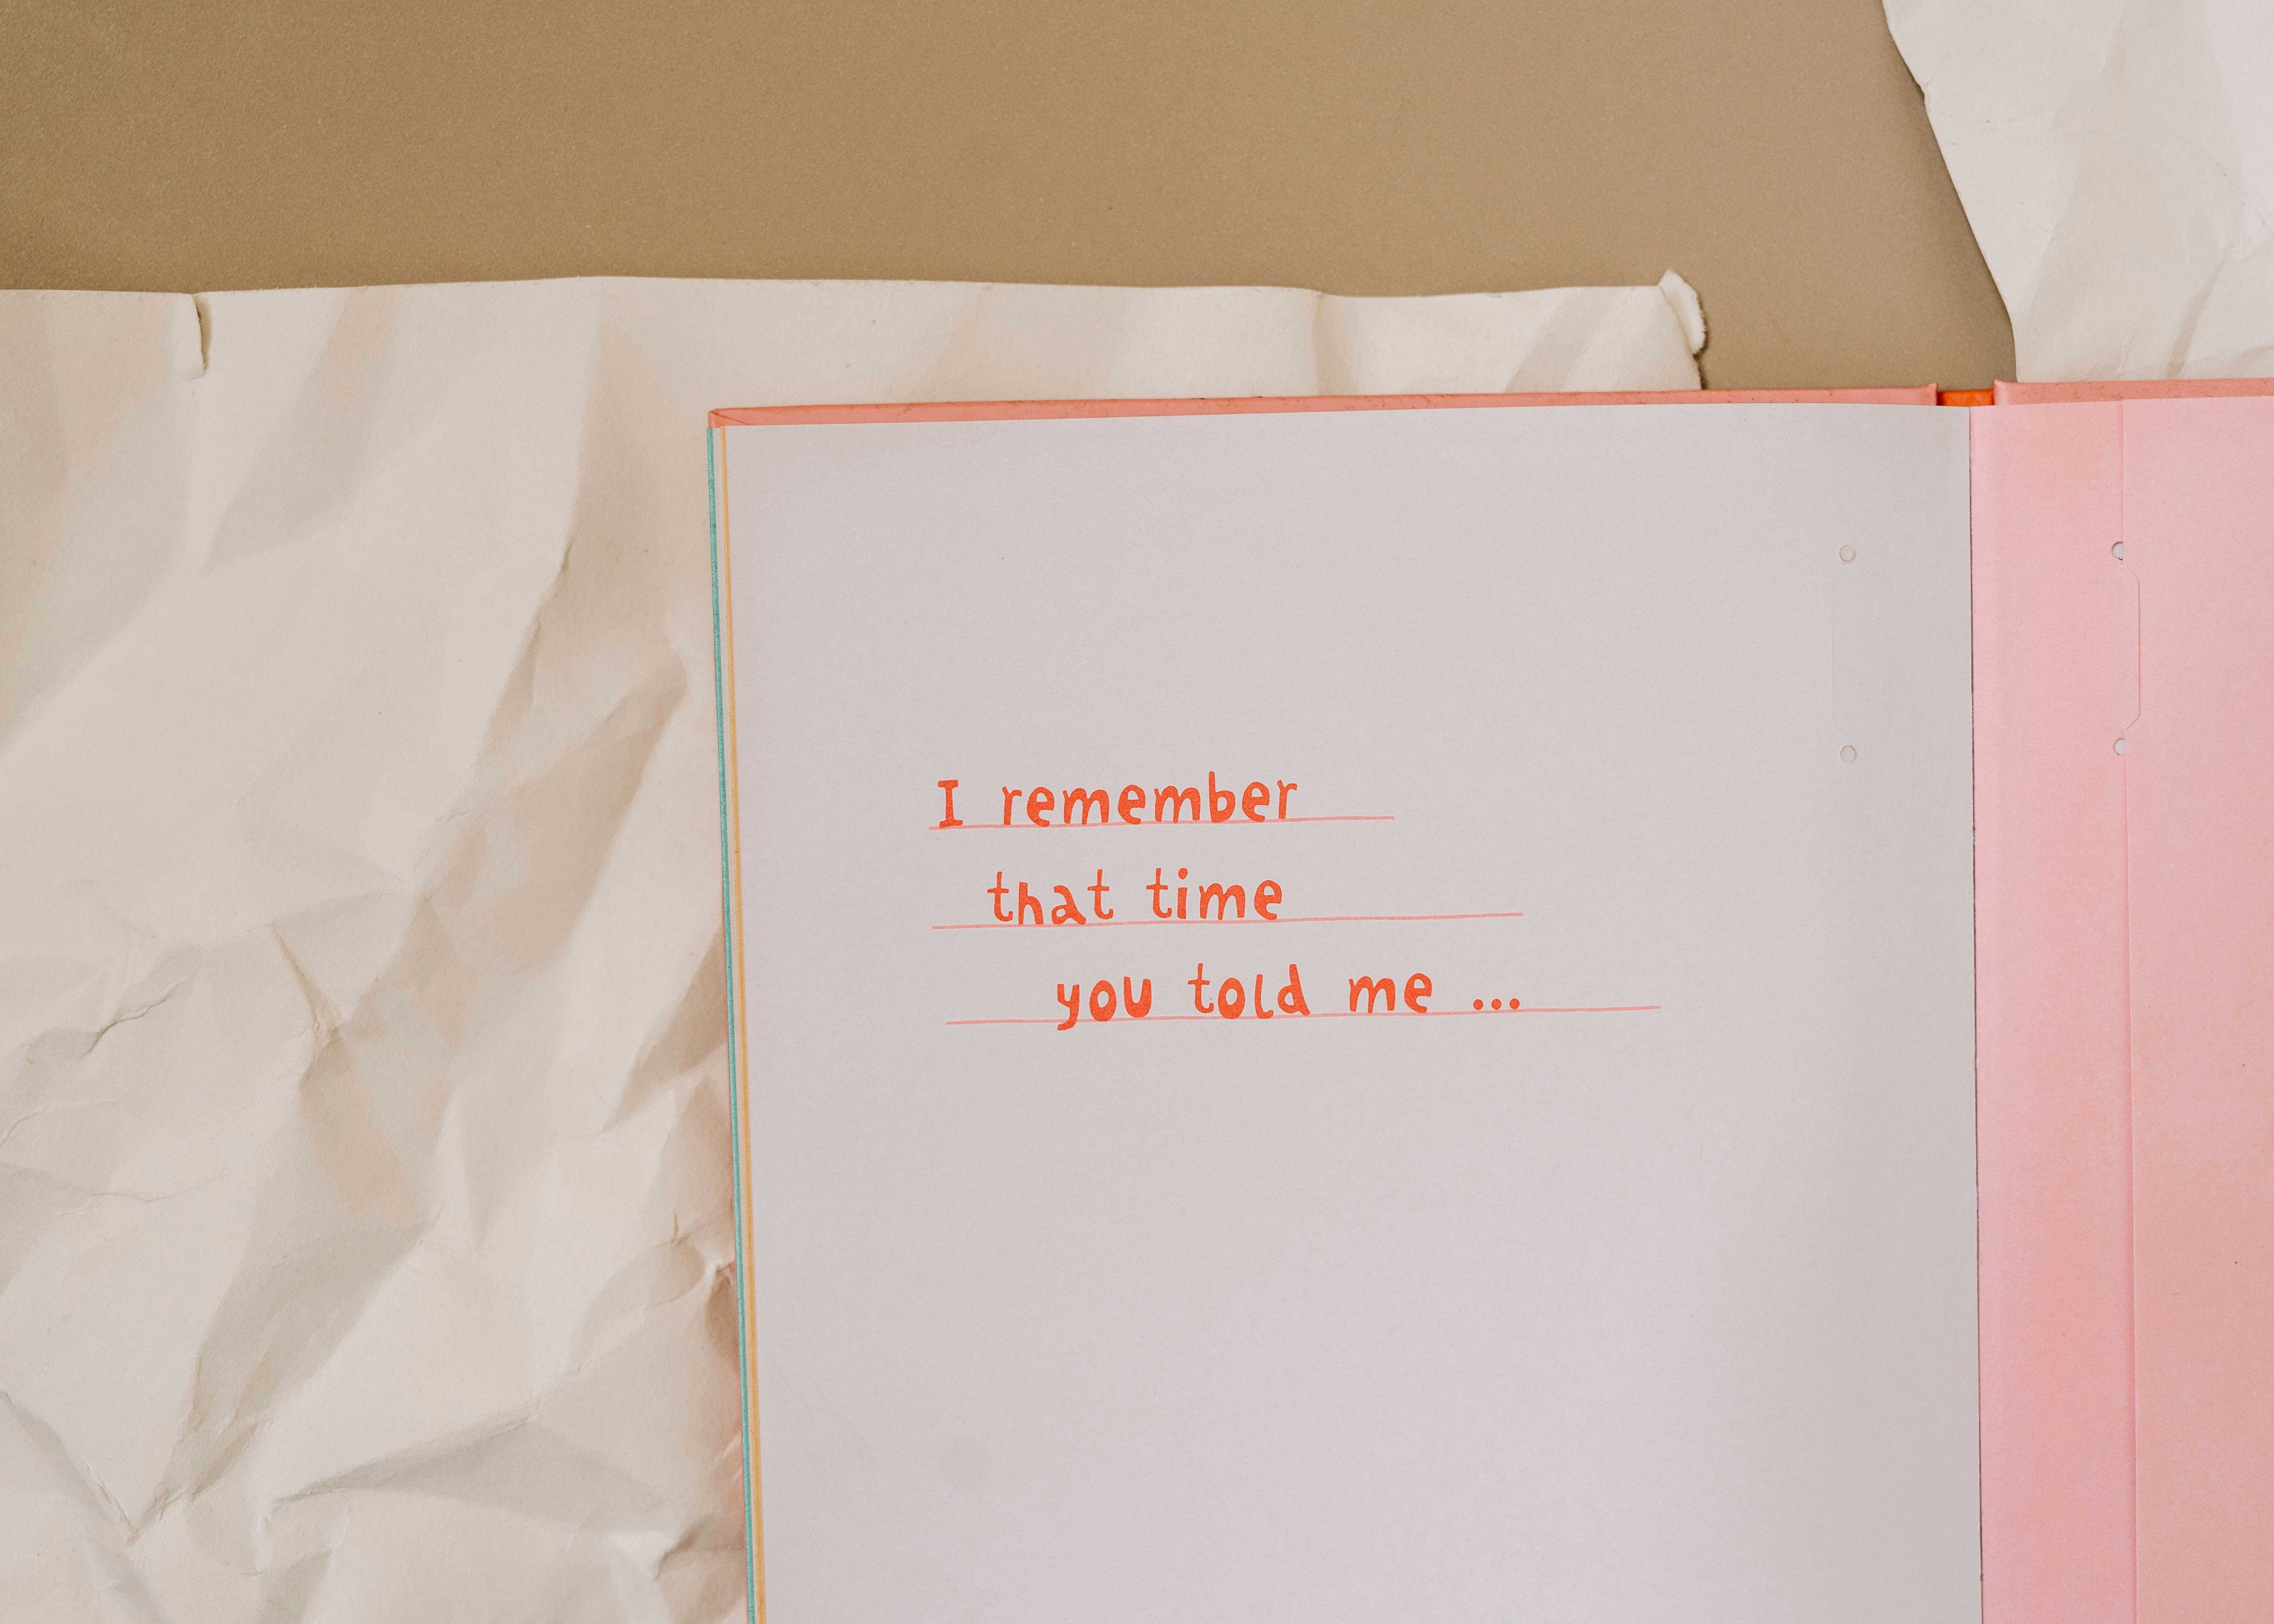 I remember
that time
you told me ...